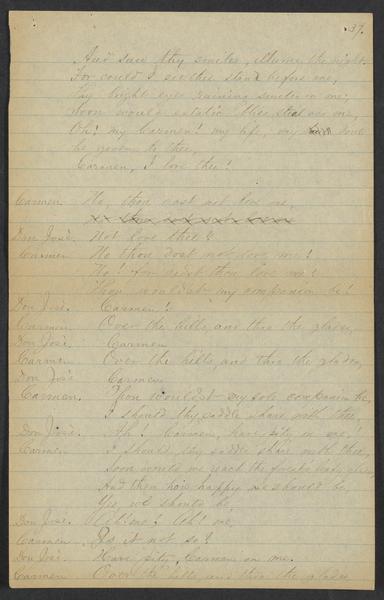 37.
And saw thy smiles, illume the night.
For could I see thee stand before me,
Thy bright eyes raining smiles on me,
Soon would estatic bliss steal oer me,
Oh! my Carmen! my life, my soul
be given to thee,
Carmen, I love thee!
Carmen. No, thou dost not love me,
Don José. Not love thee?
Carmen No thou dost not love me!
No! for didst thou love me?
Thou wouldst my companion be!
Don José. Carmen!
Carmen. Over the hills, and thro the glades,
Don José. Carmen
Carmen. Over the hills, and thro the glades,
Don José Carmen
Carmen. Thou wouldst my sole companion be,
I should thy saddle share with thee,
Don José. Ah! Carmen, have pity on me!
Carmen. I should, thy saddle share with thee,
Soon would we reach the forest's shades,
And then how happy we should be
Yes, we should be
Don José. Ah! me,
Carmen. Is it not so?
Don José. Have pity, Carmen on me.
Carmen Over the hills and thro the glades